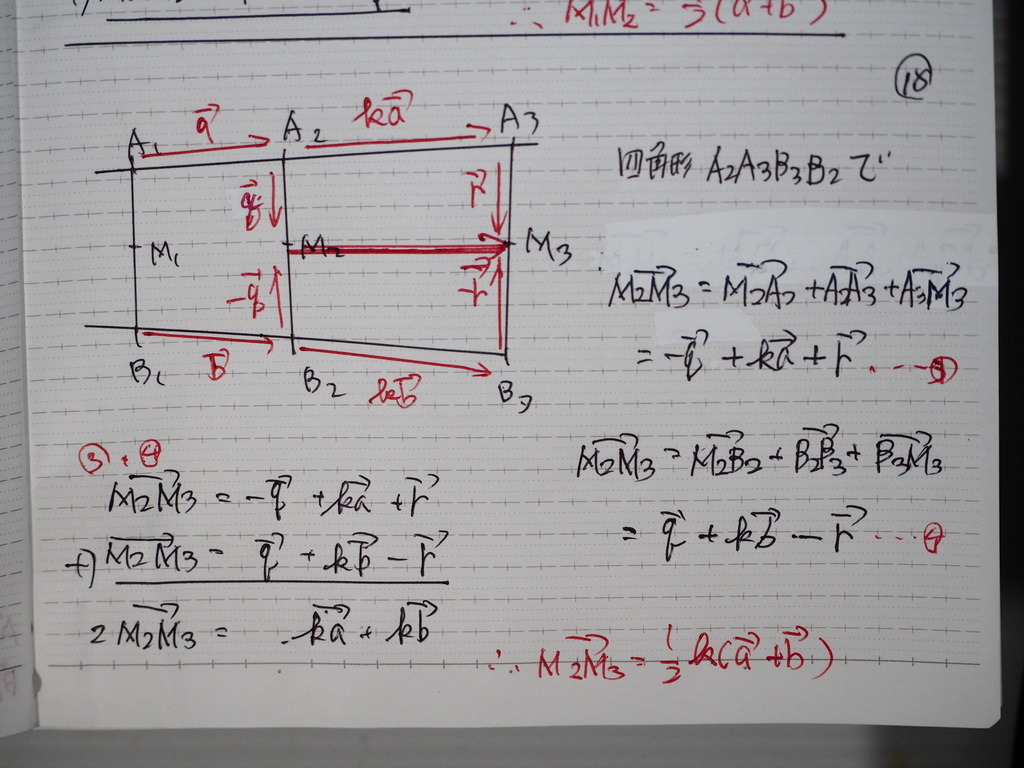 ∴ M₁M₂ = 1/2(a+b)
⑱
a⃗ ka⃗
A₁ A₂ A₃
q⃗ r⃗
M₁ M₂ M₃
-q⃗ -r⃗
B₁ b⃗ B₂ kb⃗ B₃
四角形 A₂A₃B₃B₂で
M₂M₃⃗ = M₂A₂⃗ + A₂A₃⃗ + A₃M₃⃗
= -q⃗ + ka⃗ + r⃗ ・・・③
M₂M₃⃗ = M₂B₂⃗ + B₂B₃⃗ + B₃M₃⃗
= q⃗ + kb⃗ - r⃗ ・・・④
③・④
M₂M₃⃗ = -q⃗ + ka⃗ + r⃗
+) M₂M₃⃗ = q⃗ + kb⃗ - r⃗
2M₂M₃⃗ = ka⃗ + kb⃗
∴ M₂M₃⃗ = 1/2 k(a⃗+b⃗)